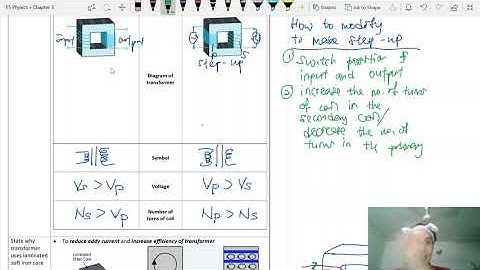 F5 Physics • Chapter 3
input output
P S
step-up
Diagram of
transformer
Symbol
Vp > Vp
Voltage
Vp > Vs
Ns > Vp
Number of
turns of coil
Np > Ns
State why
transformer
uses laminated
soft iron core
• To reduce eddy current and increase efficiency of transformer
How to modify
to make step-up
① Switch position of
input and output
② increase the no. of turns
of coil in the
secondary coil/
decrease the no. of
turns in the primary